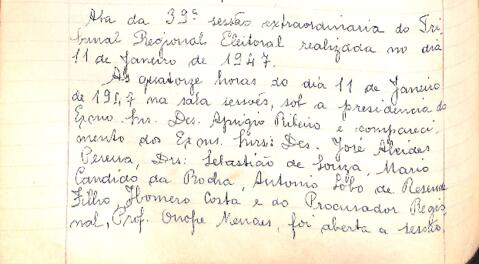 Ata da 39ª sessão extraordinaria do Tri-
bunal Regional Eleitoral realizada no dia
11 de Janeiro de 1947.
Às quatorze horas do dia 11 de Janeiro
de 1947 na sala sessões, sob a presidencia do
Exmo. Snr. Des. Aprigio Ribeiro e compareci-
mento dos Exmos. Snrs: Des. José Alcides
Pereira, Drs: Sebastião de Souza, Mario
Candido da Rocha, Antonio Lobo de Resende
Filho, Homero Costa e do Procurador Regio-
nal, Prof. Onofre Mendes, foi aberta a sessão.